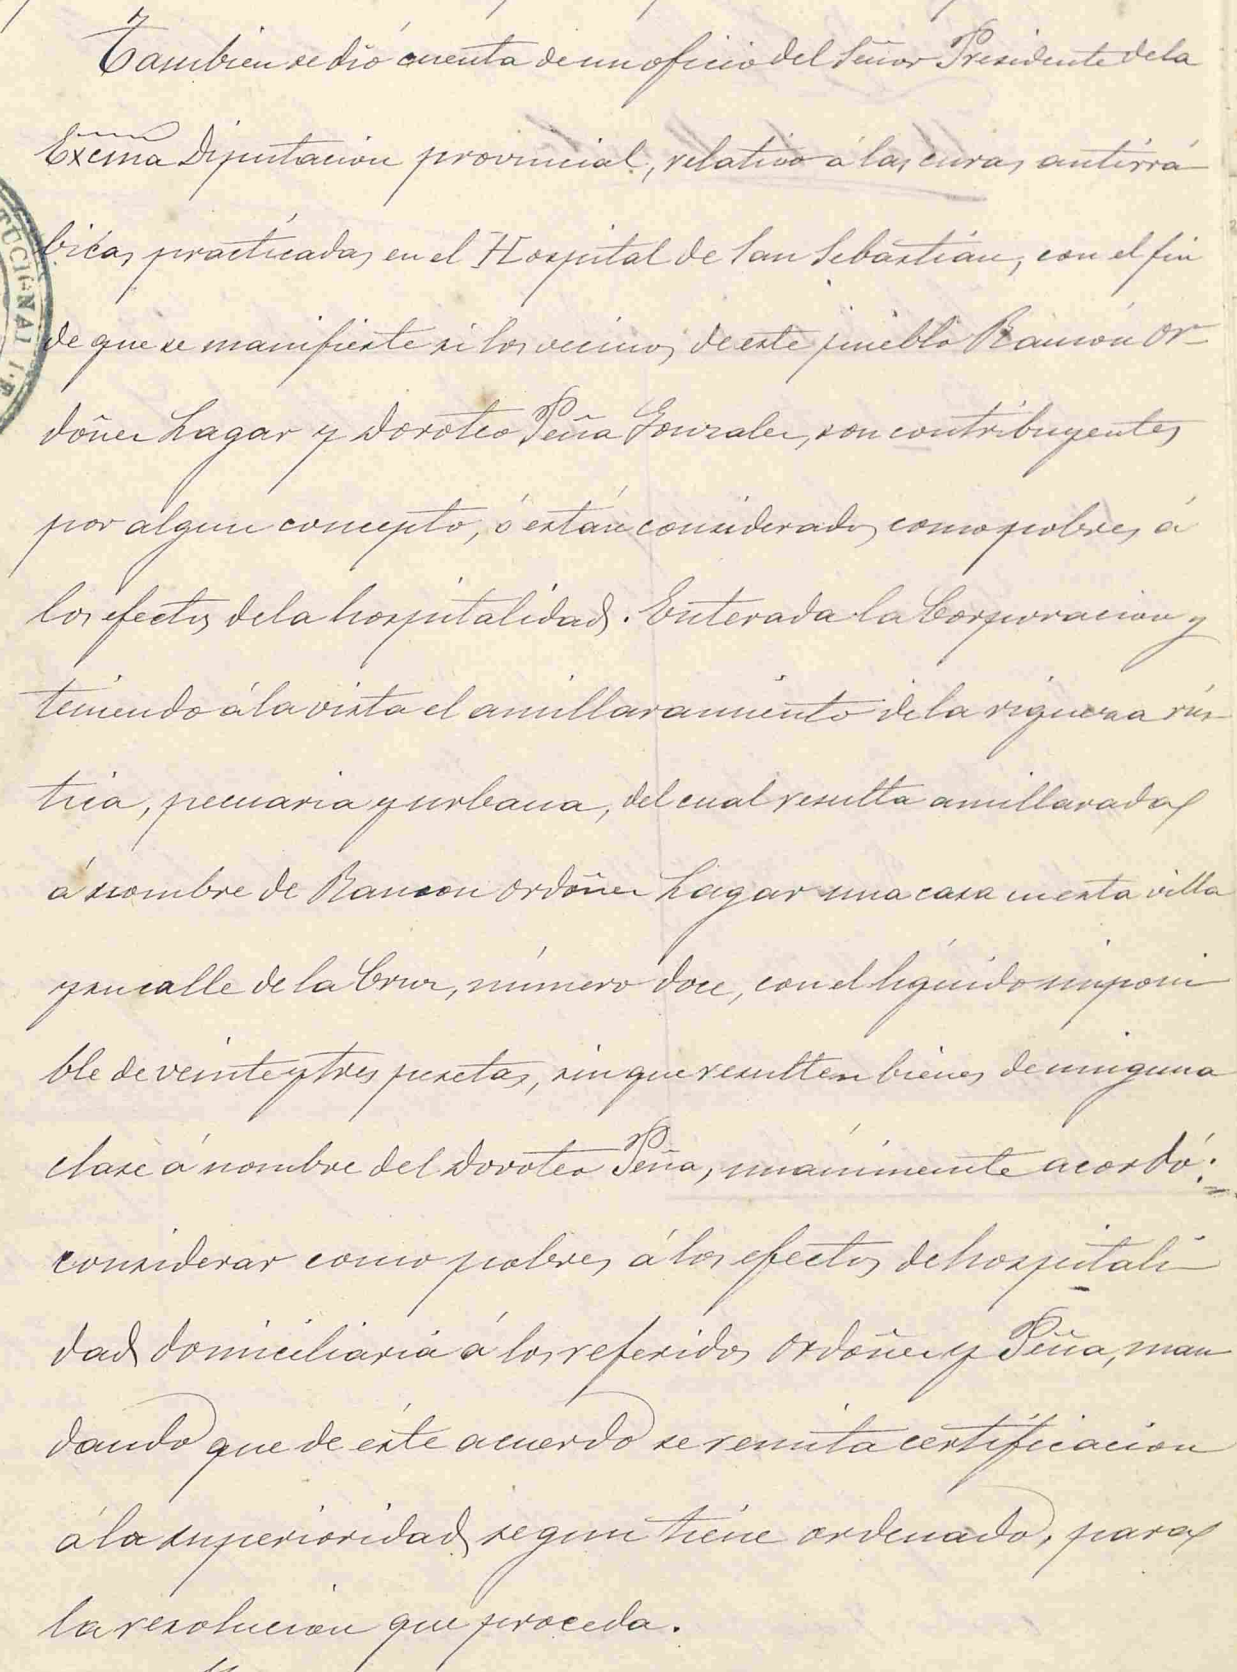 Tambien se dió cuenta de un oficio del Señor Presidente de la
Excma Diputación provincial, relativo á las curas antirrá-
bicas practicadas en el Hospital de San Sebastián, con el fin
de que se manifieste si los vecinos de este pueblo Ramón Or-
dóñez Lagar y Doroteo Peña Gonzalez, son contribuyentes
por algun concepto, ó están considerados como pobres á
los efectos de la hospitalidad. Enterada la Corporacion y
teniendo á la vista el amillaramiento de la riqueza rús-
tica, pecuaria y urbana, del cual resulta amillarada
á nombre de Ramon Ordóñez Lagar una casa en esta villa
y su calle de la Cruz, número doce, con el líquido imponi-
ble de veinte y tres pesetas, sin que resulten bienes de ninguna
clase á nombre del Doroteo Peña, unánimemente acordó:
considerar como pobres á los efectos de hospitali-
dad domiciliaria á los referidos Ordóñez y Peña, man
dando que de éste acuerdo se remita certificacion
á la superioridad segun tiene ordenado, para
la resolución que proceda.
TUCIONAL